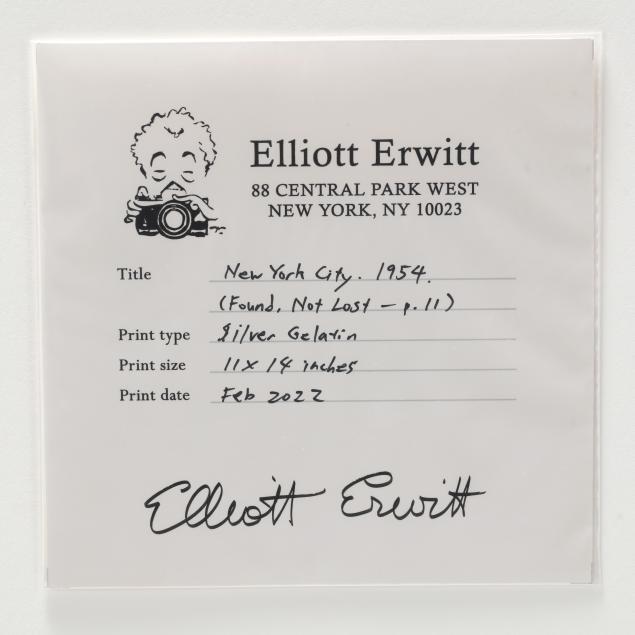 Elliott Erwitt
88 CENTRAL PARK WEST
NEW YORK, NY 10023
Title New York City. 1954.
(Found, Not Lost – p. 11)
Print type Silver Gelatin
Print size 11 x 14 inches
Print date Feb 2022
Elliott Erwitt